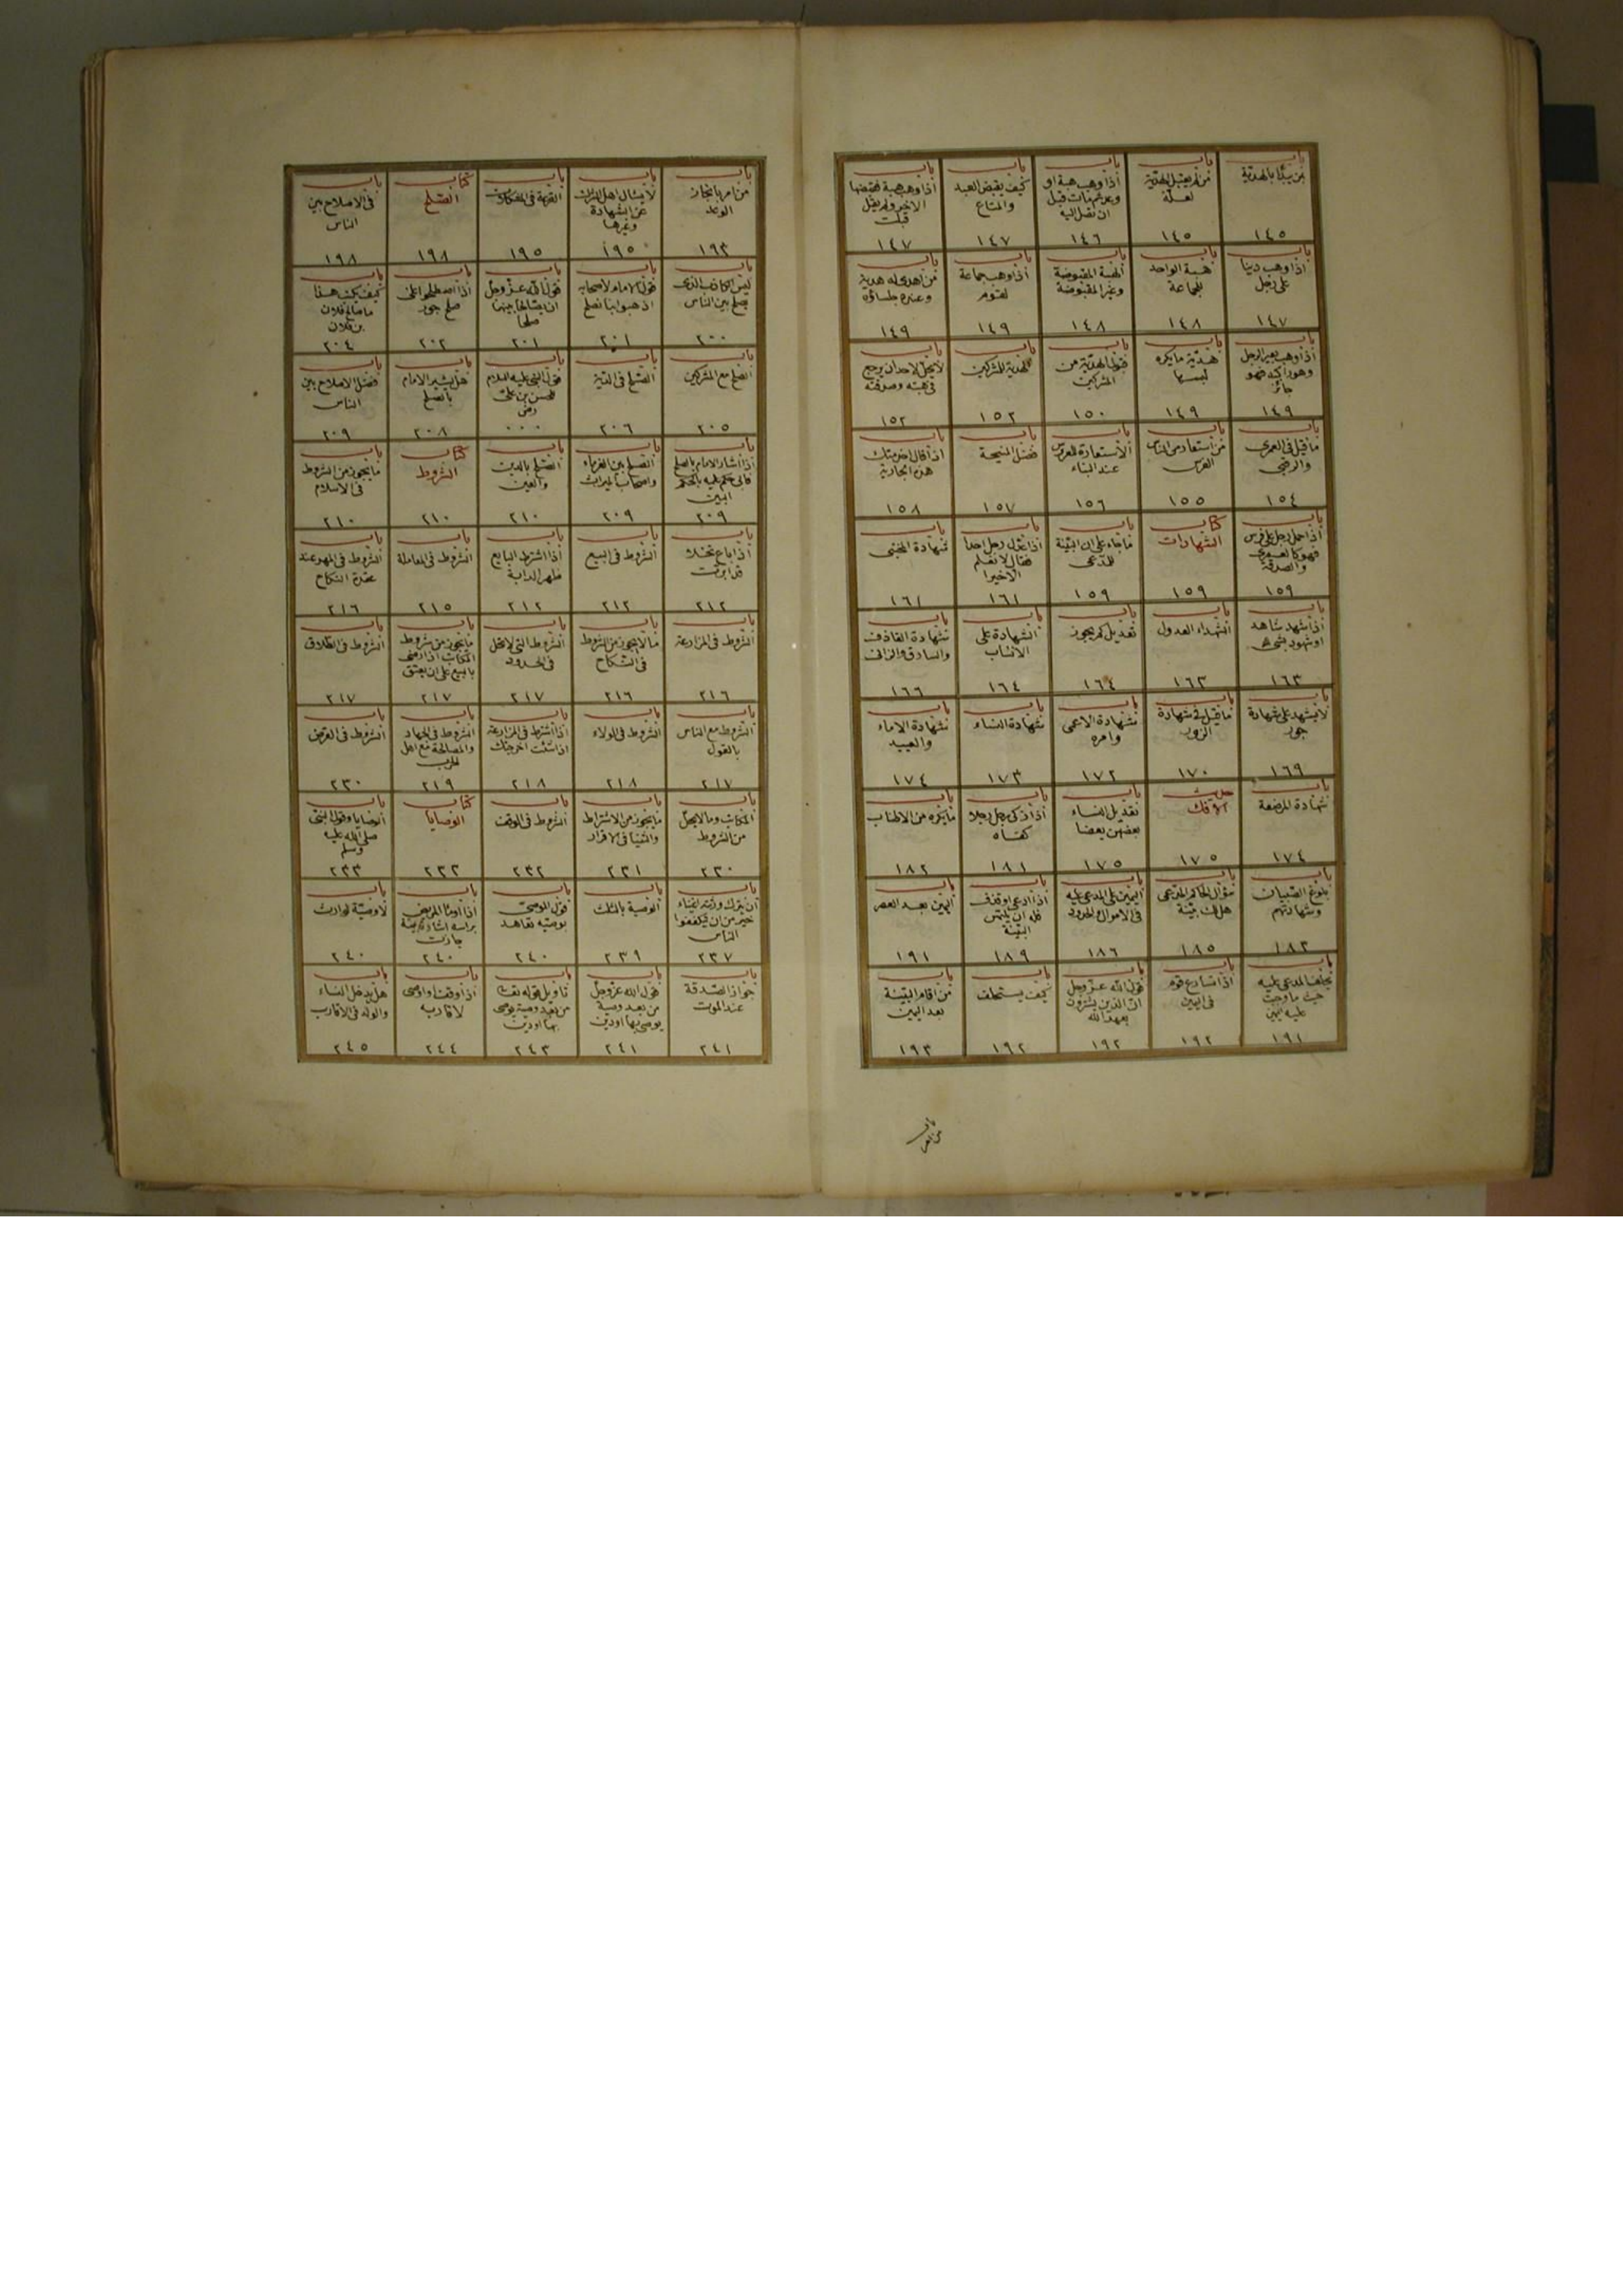 باب من يبدأ بالهدية ١٤٥
باب من لم يقبل الهدية لعلة ١٤٥
باب اذا وهب هبة او وعد ثم مات قبل ان تصل اليه ١٤٦
باب كيف يقبض العبد والمتاع ١٤٧
باب اذا وهب هبة فقبضها الاخر ولم يقل قبلت ١٤٧
باب اذا وهب دينا على رجل ١٤٧
باب هبة الواحد للجماعة ١٤٨
باب الهبة المقبوضة وغير المقبوضة ١٤٨
باب اذا وهب جماعة لقوم ١٤٩
باب من اهدى له هدية وعنده جلساؤه ١٤٩
باب اذا وهب بعير الرجل وهو راكبه فهو جائز ١٤٩
باب هدية ما يكره لبسها ١٤٩
باب قبول الهدية من المشركين ١٥٠
باب الهدية للمشركين ١٥٢
باب لا يحل لاحد ان يرجع فى هبته وصدقته ١٥٢
باب ما قيل فى العمرى والرقبى ١٥٤
باب من استعار من الناس الفرس ١٥٥
باب الاستعارة للعروس عند البناء ١٥٦
باب فضل المنيحة ١٥٧
باب اذا قال اخدمتك هذه الجارية ١٥٨
باب اذا حمل رجل على فرس فهو كالعمرى والصدقة ١٥٩
كتاب الشهادات ١٥٩
باب ما جاء على ان البينة للمدعى ١٥٩
باب اذا عدل رجل احدا فقال لا نعلم الا خيرا ١٦١
باب شهادة المختبى ١٦١
باب اذا شهد شاهد او شهود بشئ ١٦٣
باب الشهداء العدول ١٦٣
باب تعديل كم يجوز ١٦٤
باب الشهادة على الانساب ١٦٤
باب شهادة القاذف والسارق والزانى ١٦٦
باب لا يشهد على شهادة جور ١٦٩
باب ما قيل فى شهادة الزور ١٧٠
باب شهادة الاعمى وامره ١٧٢
باب شهادة النساء ١٧٣
باب شهادة الاماء والعبيد ١٧٤
باب شهادة المرضعة ١٧٤
حديث الافك ١٧٥
باب تعديل النساء بعضهن بعضا ١٧٥
باب اذا زكى رجل رجلا كفاه ١٨١
باب ما يكره من الاطناب ١٨٢
باب بلوغ الصبيان وشهادتهم ١٨٢
باب سؤال الحاكم المدعى هل لك بينة ١٨٥
باب اليمين على المدعى عليه فى الاموال والحدود ١٨٦
باب اذا ادعى او قذف فله ان يلتمس البينة ١٨٩
باب اليمين بعد العصر ١٩١
باب يحلف المدعى عليه حيث ما وجبت عليه اليمين ١٩١
باب اذا تسارع قوم فى اليمين ١٩٢
باب قول الله عز وجل ان الذين يشترون بعهد الله ١٩٢
باب كيف يستحلف ١٩٢
باب من اقام البينة بعد اليمين ١٩٣
باب من امر بانجاز الوعد ١٩٣
باب لا يسئال اهل الشرك عن الشهادة وغيرها ١٩٥
باب القرعة فى المشكلات ١٩٥
كتاب الصلح ١٩٨
باب فى الاصلاح بين الناس ١٩٨
باب ليس الكاذب الذى يصلح بين الناس ٢٠٠
باب قول الامام لاصحابه اذهبوا بنا نصلح ٢٠١
باب قول الله عز وجل ان يصالحا بينهما صلحا ٢٠١
باب اذا اصطلحوا على صلح جور ٢٠٢
باب كيف يكتب هذا ما صالح فلان بن فلان ٢٠٤
باب الصلح مع المشركين ٢٠٥
باب الصلح فى الدية ٢٠٦
باب قول النبى عليه السلام للحسن بن على رضى ٠٠٠
باب هل يشير الامام بالصلح ٢٠٨
باب فضل الاصلاح بين الناس ٢٠٩
باب اذا اشار الامام بالصلح فابى حكم عليه بالحكم البين ٢٠٩
باب الصلح بين الغرماء واصحاب الميراث ٢٠٩
باب الصلح بالدين والعين ٢١٠
كتاب الشروط ٢١٠
باب ما يجوز من الشروط فى الاسلام ٢١٠
باب اذا باع نخلا قد ابرت ٢١٢
باب الشروط فى البيع ٢١٢
باب اذا اشترط البايع ظهر الدابة ٢١٢
باب الشروط فى المعاملة ٢١٥
باب الشروط فى المهر عند عقدة النكاح ٢١٦
باب الشروط فى المزارعة ٢١٦
باب ما لا يجوز من الشروط فى النكاح ٢١٦
باب الشروط التى لا تحل فى الحدود ٢١٧
باب ما يجوز من شروط المكاتب اذا رضى بالبيع على ان يعتق ٢١٧
باب الشروط فى الطلاق ٢١٧
باب الشروط مع الناس بالقول ٢١٧
باب الشروط فى الولاء ٢١٨
باب اذا اشترط فى المزارعة اذا شئت اخرجتك ٢١٨
باب الشروط فى الجهاد والمصالحة مع اهل الحرب ٢١٩
باب الشروط فى القرض ٢٣٠
باب المكاتب وما لا يحل من الشروط ٢٣٠
باب ما يجوز من الاشتراط والثنيا فى الاقرار ٢٣١
باب الشروط فى الوقف ٢٣٢
كتاب الوصايا ٢٣٢
باب الوصايا وقول النبى صلى الله عليه وسلم ٢٣٣
باب ان يترك ورثته اغنياء خير من ان يتكففوا الناس ٢٣٧
باب الوصية بالثلث ٢٣٩
باب قول الموصى لوصيه تعاهد ٢٤٠
باب اذا اومأ المريض براسه اشارة بينة جازت ٢٤٠
باب لا وصية لوارث ٢٤٠
باب جواز الصدقة عند الموت ٢٤١
باب قول الله عز وجل من بعد وصية يوصى بها او دين ٢٤١
باب تاويل قوله تعالى من بعد وصية يوصى بها او دين ٢٤٣
باب اذا وقف او اوصى لاقاربه ٢٤٤
باب هل يدخل النساء والولد فى الاقارب ٢٤٥